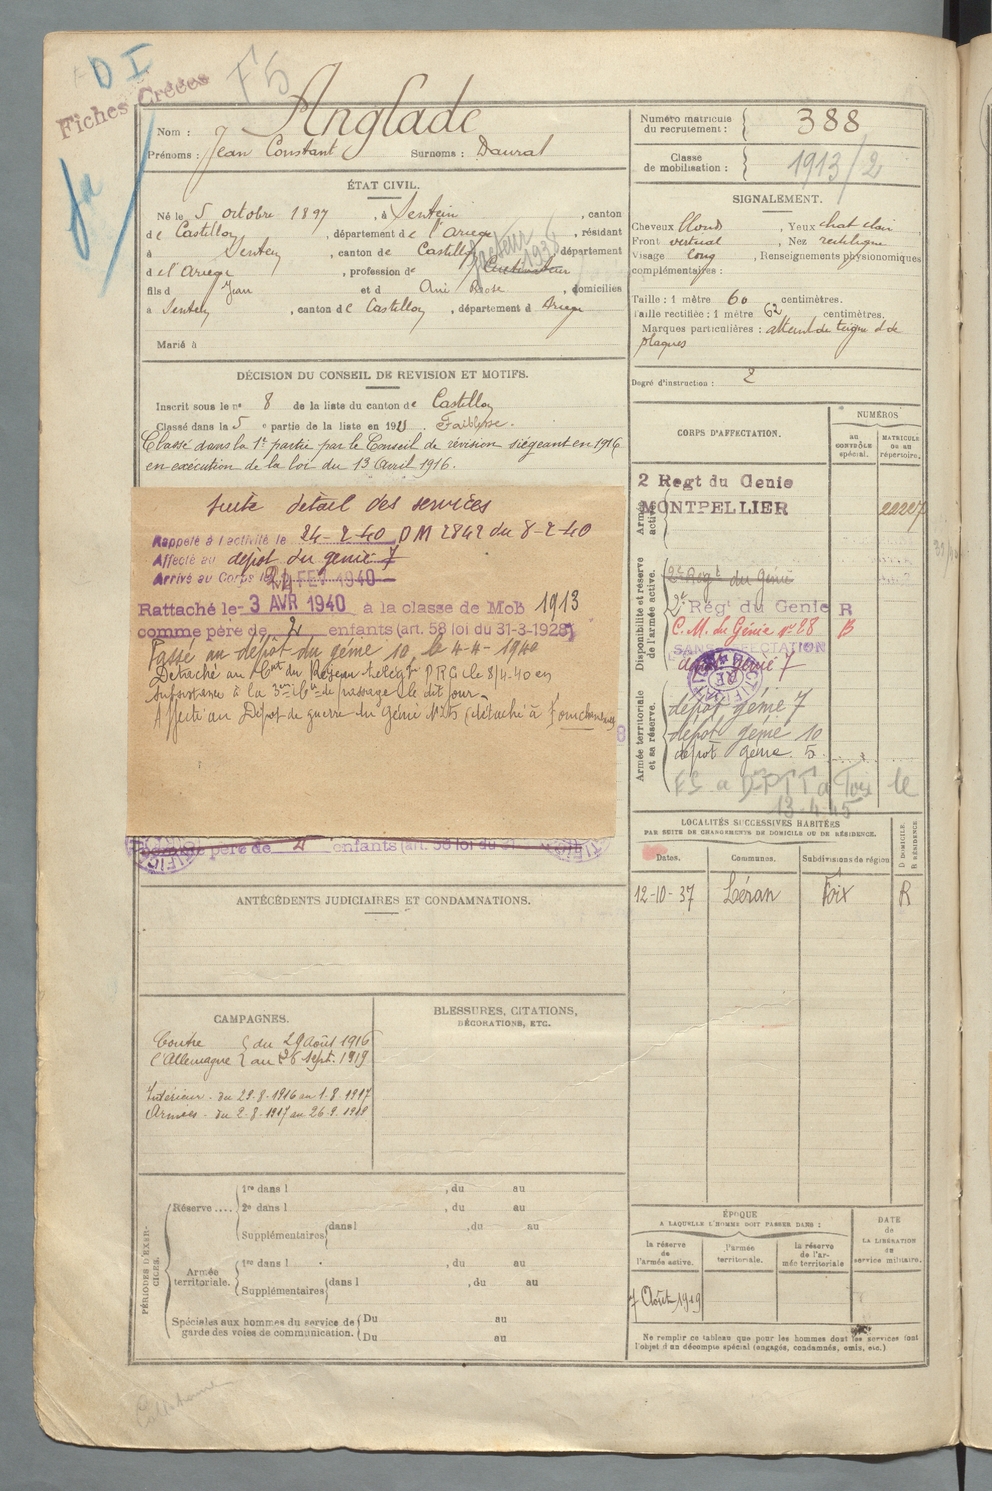 D I
F5
Fiches Créées
Nom : Anglade
Prénoms : Jean Constant Surnoms : Daural
Numéro matricule du recrutement : 388
Classe de mobilisation : 1913/2
ÉTAT CIVIL.
Né le 5 octobre 1897, à Sentein, canton
de Castillon, département de l'Ariège, résidant
à Sentein, canton de Castillon, département
facteur 1938
de l'Ariège, profession de Cultivateur
fils d Jean et d Ané Rose, domiciliés
à Sentein, canton de Castillon, département d Ariège
Marié à
SIGNALEMENT.
Cheveux blonds, Yeux chat clair
Front vertical, Nez rectiligne
Visage long, Renseignements physionomiques
complémentaires :
Taille : 1 mètre 60 centimètres.
Taille rectifiée : 1 mètre 62 centimètres.
Marques particulières : atteint de teigne et de
plaques
Degré d'instruction : 2
DÉCISION DU CONSEIL DE REVISION ET MOTIFS.
Inscrit sous le n° 8 de la liste du canton de Castillon
Classé dans la 5e partie de la liste en 191 Faiblesse.
Classé dans la 1e partie par le Conseil de révision siégeant en 1916
en exécution de la loi du 13 Avril 1916.
suite détail des services
Rappelé à l'activité le 24-2-40 DM 2842 du 8-2-40
Affecté au dépôt du génie 7
Arrivé au Corps le 24 FEV 1940
Rattaché le 3 AVR 1940 à la classe de Mob 1913
comme père de 2 enfants (art. 58 loi du 31-3-1928)
Passé au dépôt du génie 10 le 4-4-1940
Détaché au Cnt du Réseau télégr PRG le 8/4-40 en
Subsistance à la 3me Cie de passage le dit jour.
Affecté au Dépôt de guerre du Génie N° 25 (détaché à
comme père de enfants (art. 58 loi du 31
CORPS D'AFFECTATION.
NUMÉROS
AU CONTRÔLE spécial.
MATRICULE OU AU répertoire.
Armée active.
2 Regt du Genie
MONTPELLIER 22227
Disponibilité et réserve de l'armée active.
2e Régt du Génie
2e Régt du Genie R
C.M. du Génie n° 28 B
SANS AFFECTATION
dépôt génie 7
Armée territoriale et sa réserve.
dépôt génie 7
dépôt génie 10
dépôt génie 5
13-4-45
LOCALITÉS SUCCESSIVES HABITÉES
PAR SUITE DE CHANGEMENTS DE DOMICILE OU DE RÉSIDENCE.
Dates. Communes. Subdivisions de région D DOMICILE R RÉSIDENCE
12-10-37 Léran Foix R
ANTÉCÉDENTS JUDICIAIRES ET CONDAMNATIONS.
CAMPAGNES.
Contre l'Allemagne { du 29 Août 1916
au 26 Sept. 1919
Intérieur - du 29.8.1916 au 1.8.1917
Armées - du 2.8.1917 au 26.9.1919
BLESSURES, CITATIONS,
DÉCORATIONS, ETC.
PÉRIODES D'EXERCICES.
Réserve .... 1re dans l , du au
2e dans l , du au
Supplémentaires dans l , du au
Armée territoriale. 1re dans l , du au
Supplémentaires dans l , du au
Spéciales aux hommes du service de Du au
garde des voies de communication. Du au
ÉPOQUE
A LAQUELLE L'HOMME DOIT PASSER DANS :
la réserve de l'armée active.
l'armée territoriale.
la réserve de l'armée territoriale
DATE de LA LIBÉRATION du service militaire.
7 Août 1919
Ne remplir ce tableau que pour les hommes dont les services font
l'objet d'un décompte spécial (engagés, condamnés, omis, etc.)